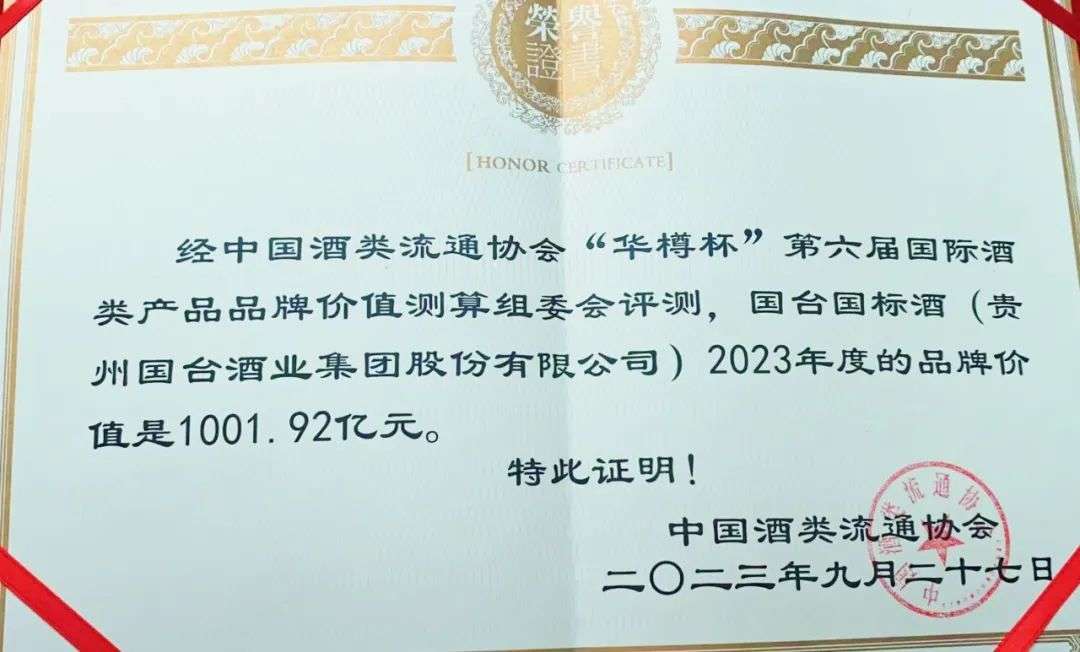 榮譽
證書
[HONOR CERTIFICATE]
经中国酒类流通协会“华樽杯”第六届国际酒
类产品品牌价值测算组委会评测，国台国标酒（贵
州国台酒业集团股份有限公司）2023年度的品牌价
值是1001.92亿元。
特此证明！
中国酒类流通协会
二〇二三年九月二十七日
中国酒类流通协